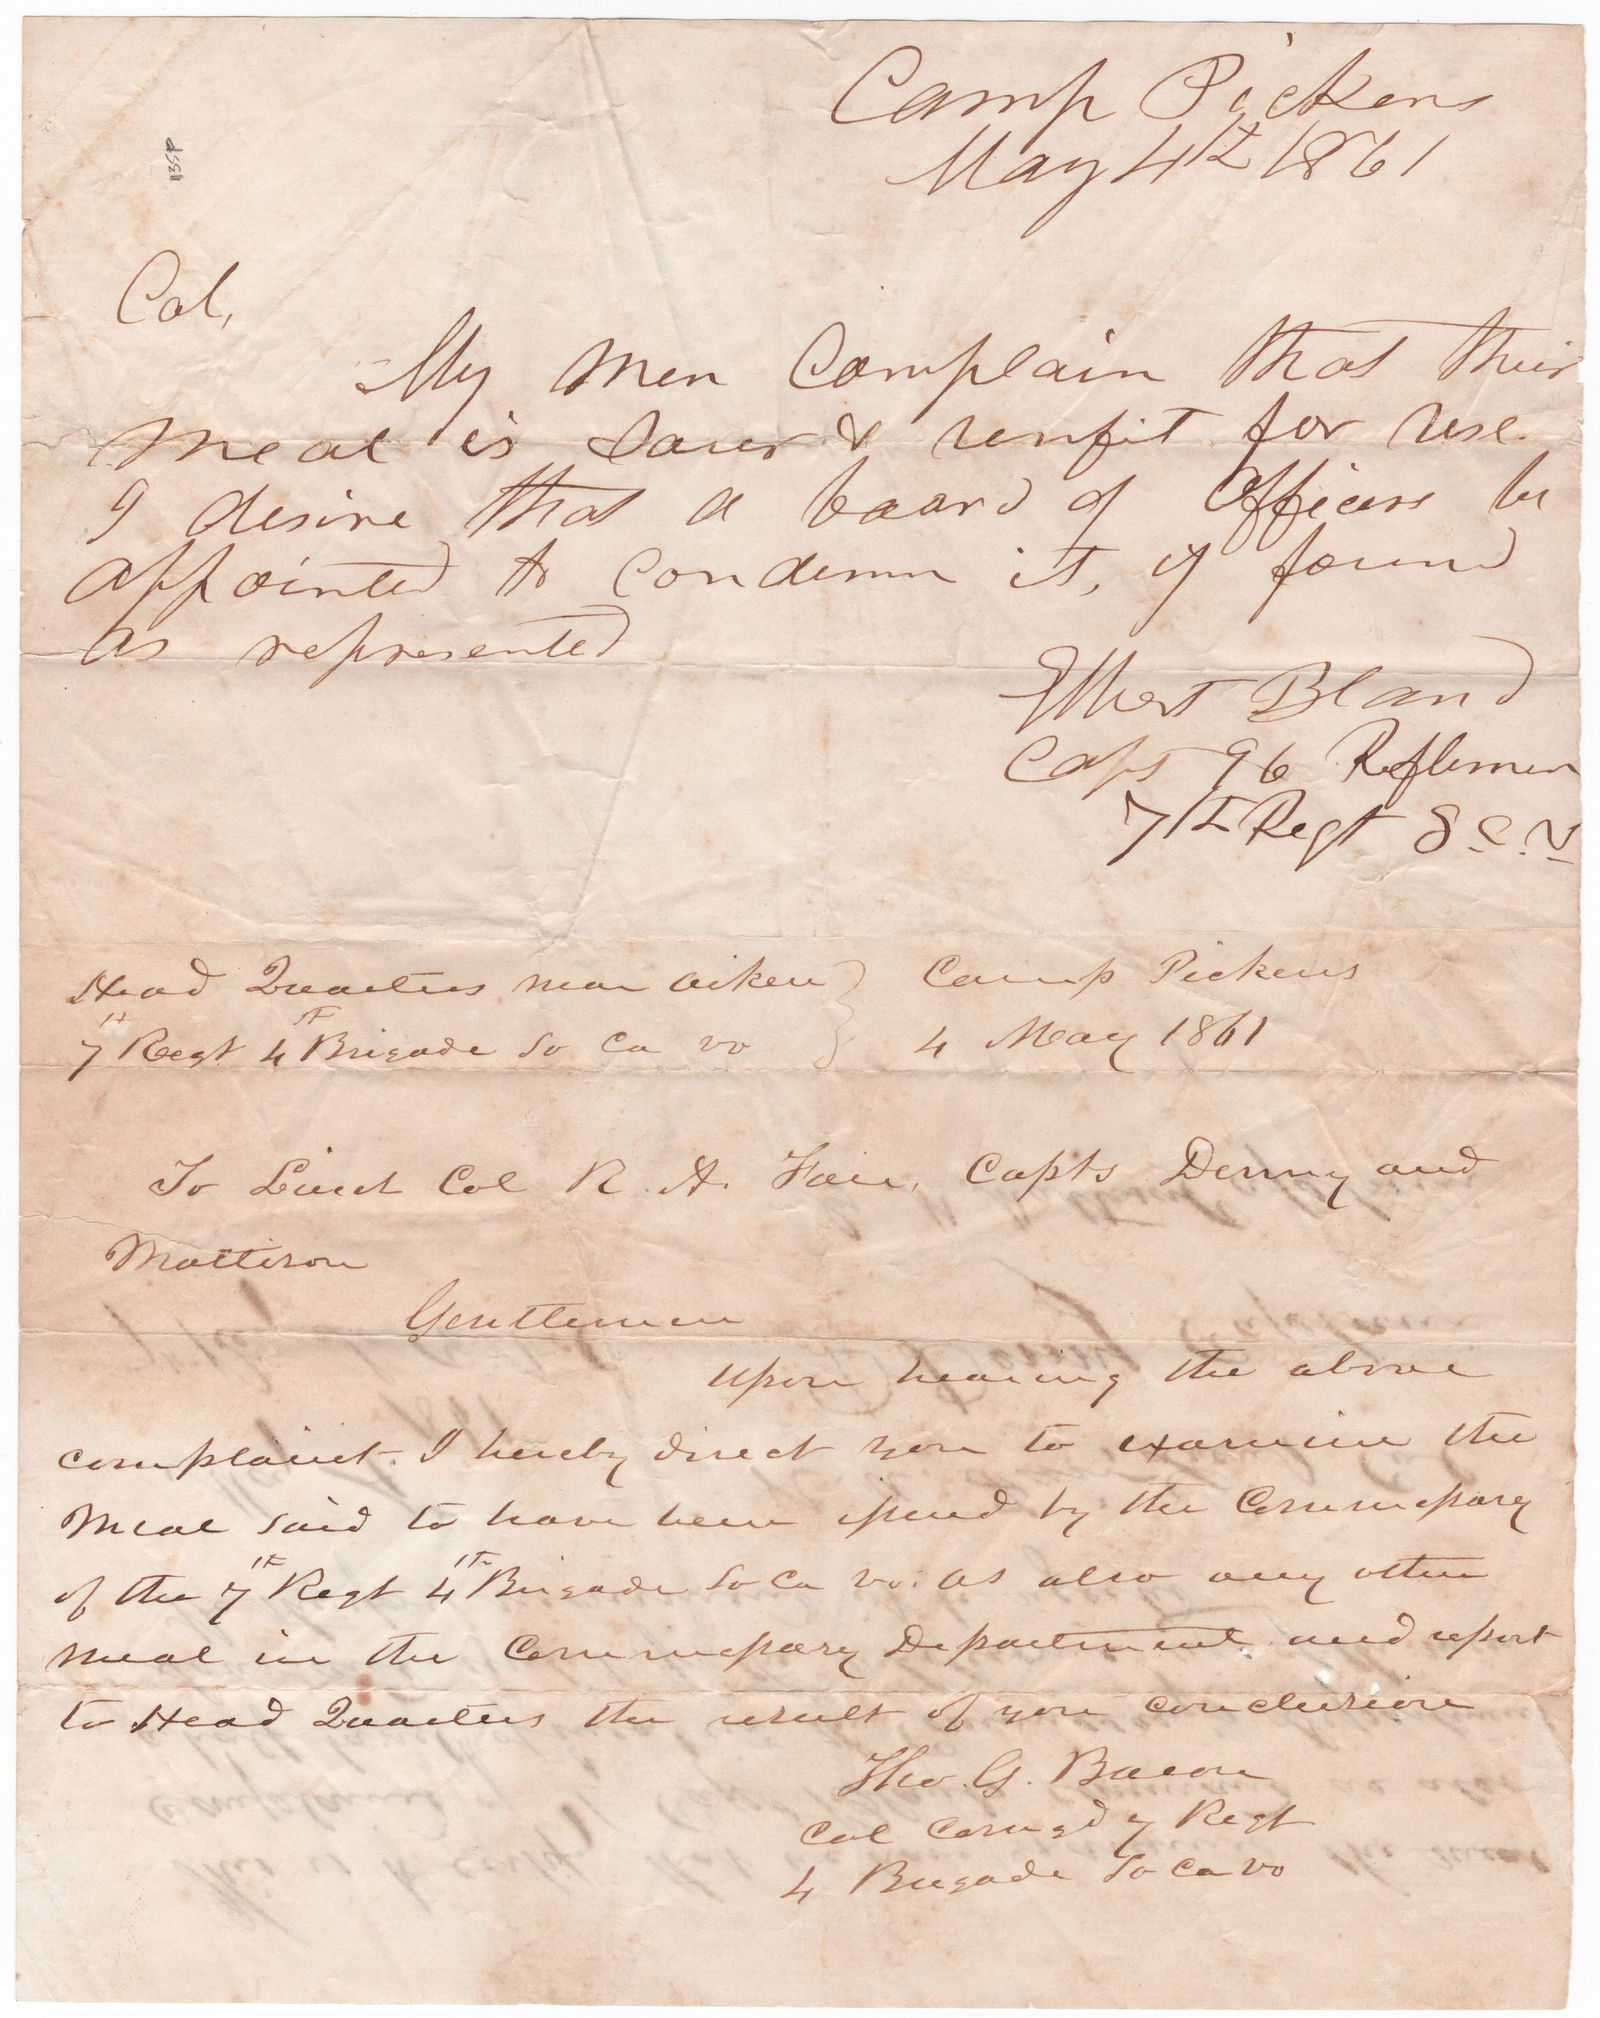 Camp Pickens
May 4th 1861
Col,
My Men Complain that their
Meal is Sour & unfit for use.
I desire that a board of Officers be
appointed to Condemn it, if found
as represented
Elbert Bland
Capt 96 Riflemen
7th Regt S.C.V
Head Quarters near Aiken
7th Regt 4th Brigade So Ca vo
Camp Pickens
4 May 1861
To Lieut Col R. A. Fair, Capts Denny and
Mattison
Gentlemen
Upon hearing the above
complaint. I hereby direct you to examine the
Meal said to have been issued by the Commissary
of the 7th Regt 4th Brigade So Ca vo. as also any other
meal in the Commissary Department and report
to Head Quarters the result of your conclusion
Tho. G. Bacon
Col Comgd 7 Regt
4 Brigade So Ca vo